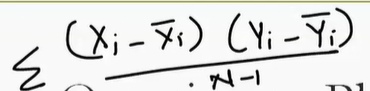 Σ (Xi - X̅i) (Yi - Y̅i) / N-1